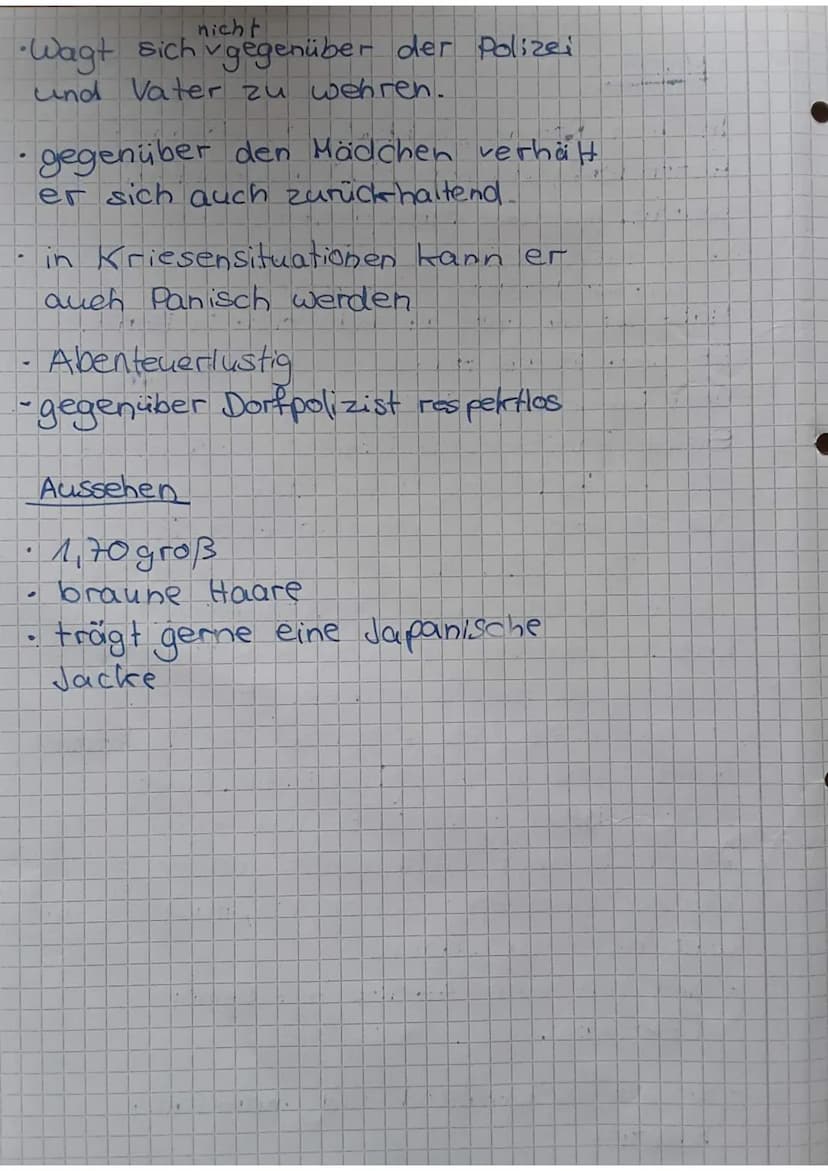 nicht
· Wagt sich ᵛ gegenüber der Polizei
und Vater zu wehren.
· gegenüber den Mädchen verhält
er sich auch zurückhaltend.
· in Kriesensituationen kann er
auch Panisch werden
- Abenteuerlustig
- gegenüber Dorfpolizist respektlos
Aussehen
· 1,70 groß
· braune Haare
· trägt gerne eine Japanische
Jacke